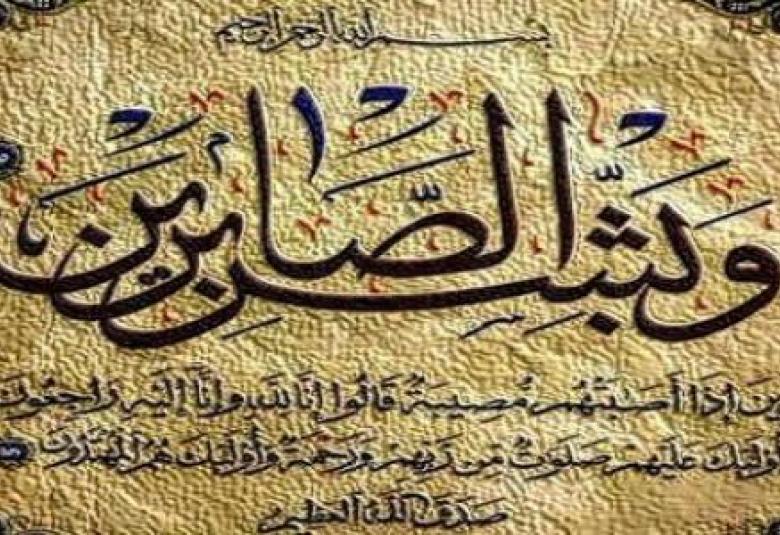 بسم الله الرحمن الرحيم
وَبَشِّرِ الصَّابِرِينَ
إِذَا أَصَابَتْهُم مُّصِيبَةٌ قَالُوا إِنَّا لِلَّهِ وَإِنَّا إِلَيْهِ رَاجِعُونَ
عَلَيْهِمْ صَلَوَاتٌ مِّن رَّبِّهِمْ وَرَحْمَةٌ وَأُولَئِكَ هُمُ الْمُهْتَدُونَ
صدق الله العظيم